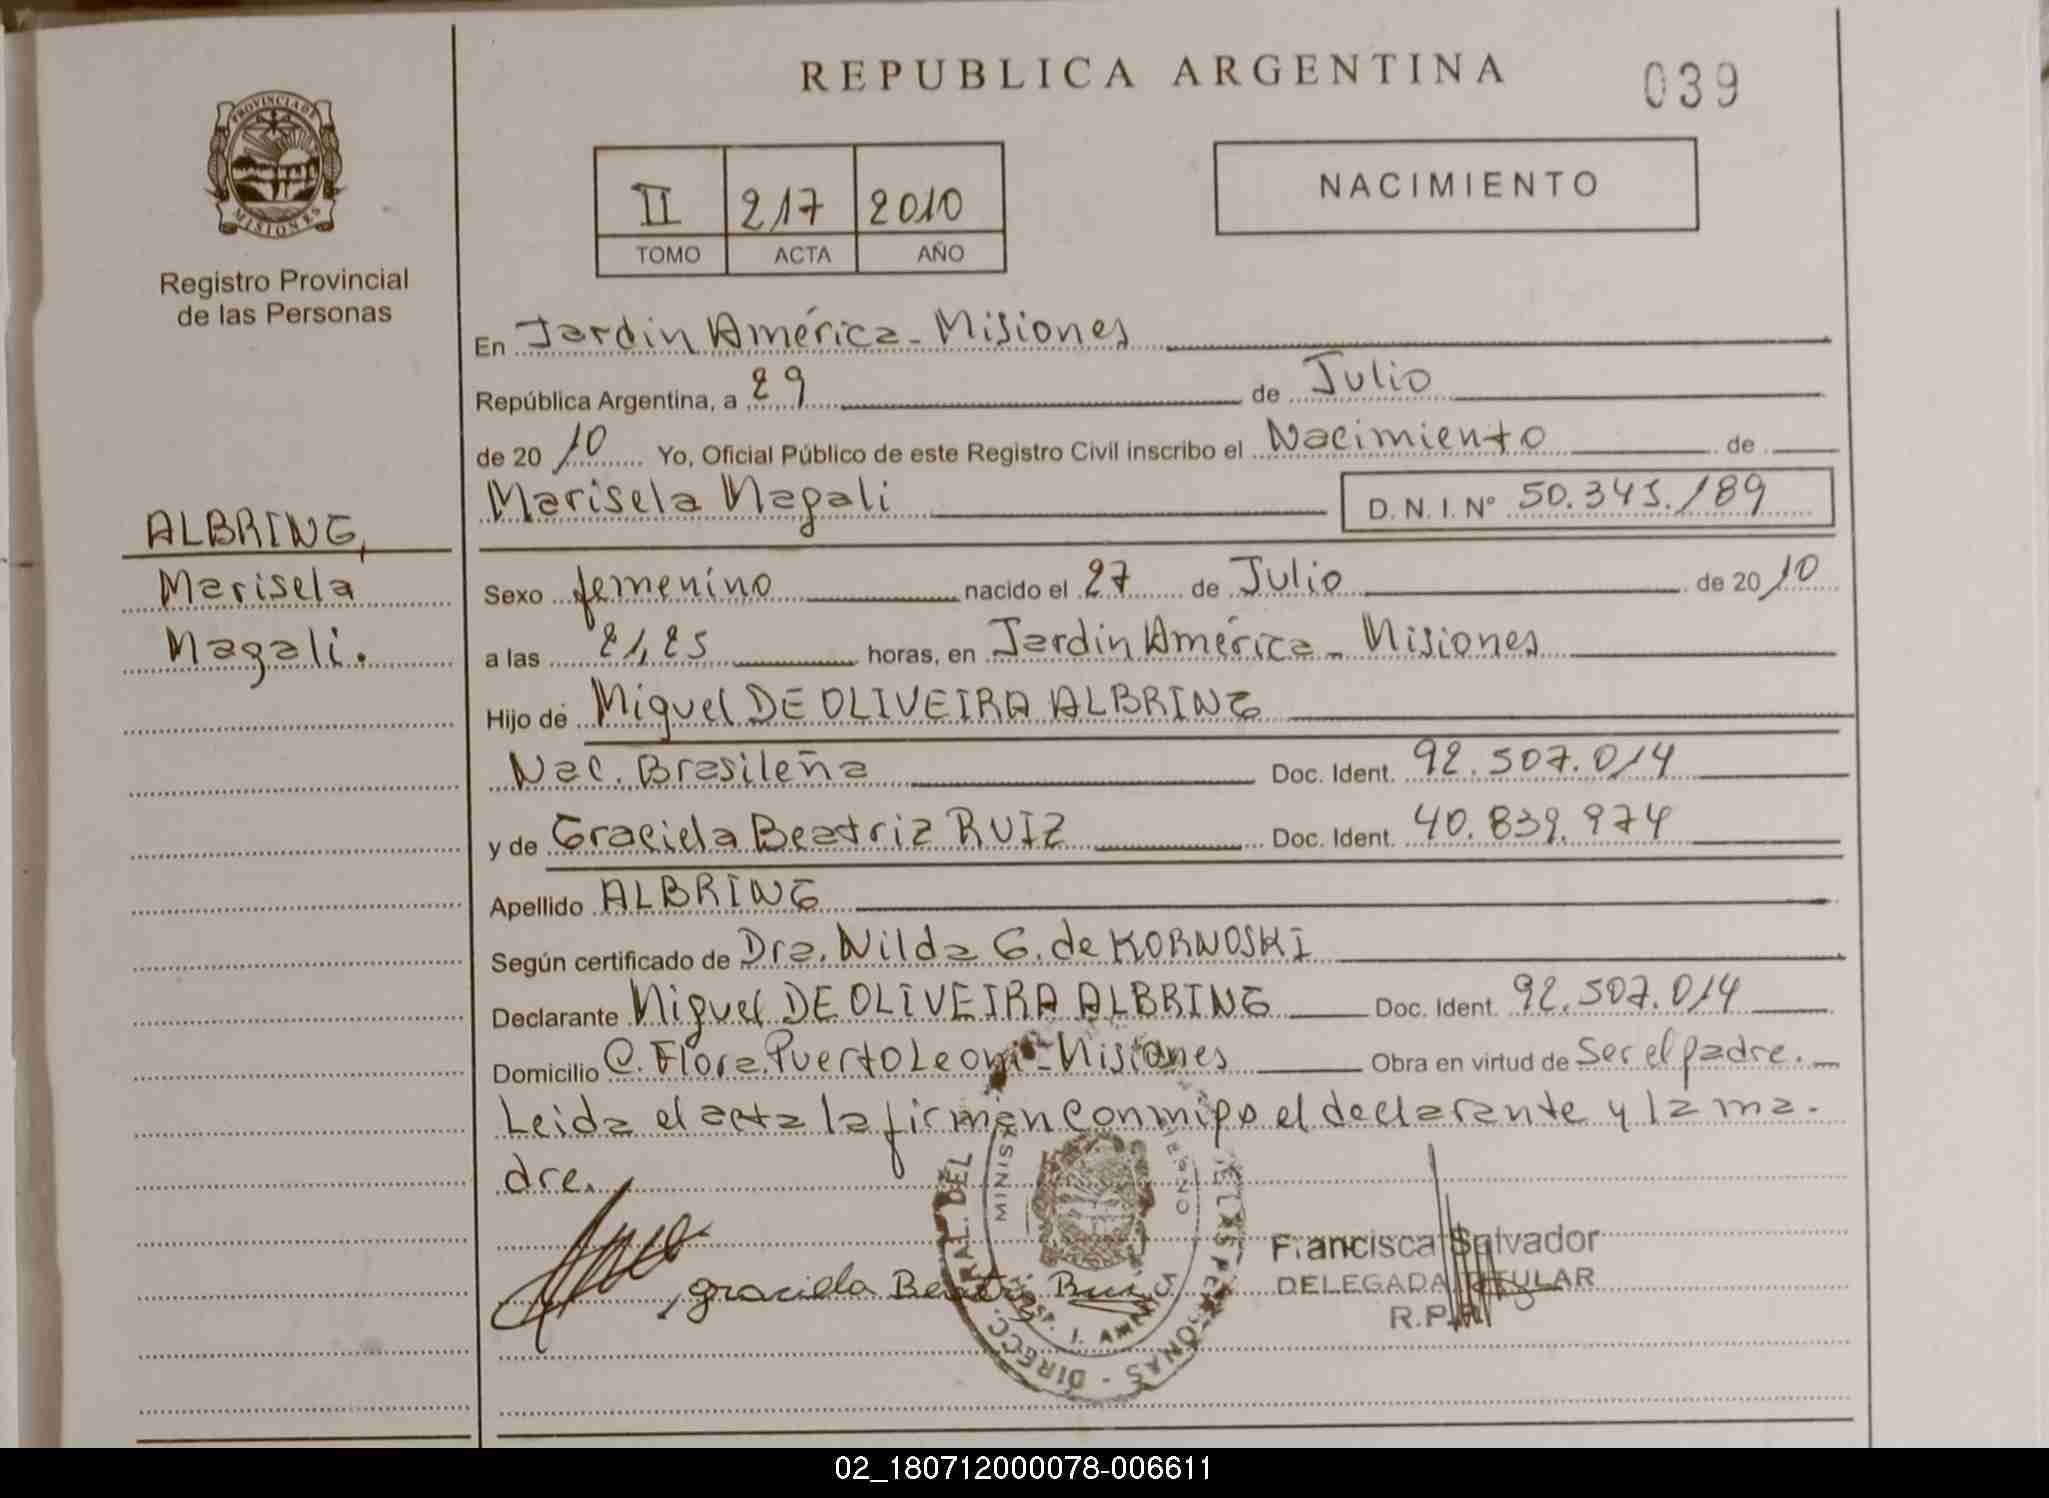 REPUBLICA ARGENTINA
039
PROVINCIA DE MISIONES
Registro Provincial
de las Personas
II 217 2010
TOMO ACTA AÑO
NACIMIENTO
ALBRING,
Marisela
Magali.
En Jardin América - Misiones
República Argentina, a 29 de Julio
de 2010 Yo, Oficial Público de este Registro Civil inscribo el Nacimiento de
Marisela Magali D.N.I. Nº 50.345.189
Sexo femenino nacido el 27 de Julio de 2010
a las 21,25 horas, en Jardin América - Misiones
Hijo de Miguel DE OLIVEIRA ALBRING
Nac. Brasileña Doc. Ident. 92.507.014
y de Graciela Beatriz RUIZ Doc. Ident. 40.839.974
Apellido ALBRING
Según certificado de Dra. Nilda G. de KORNOSKI
Declarante Miguel DE OLIVEIRA ALBRING Doc. Ident. 92.507.014
Domicilio C. Flora. Puerto Leoni - Misiones Obra en virtud de Ser el padre.
Leida el acta la firman conmigo el declarante y la ma-
dre.
graciela Beatriz Ruiz
Francisca Salvador
DELEGADA TITULAR
R.P.P.
02_180712000078-006611